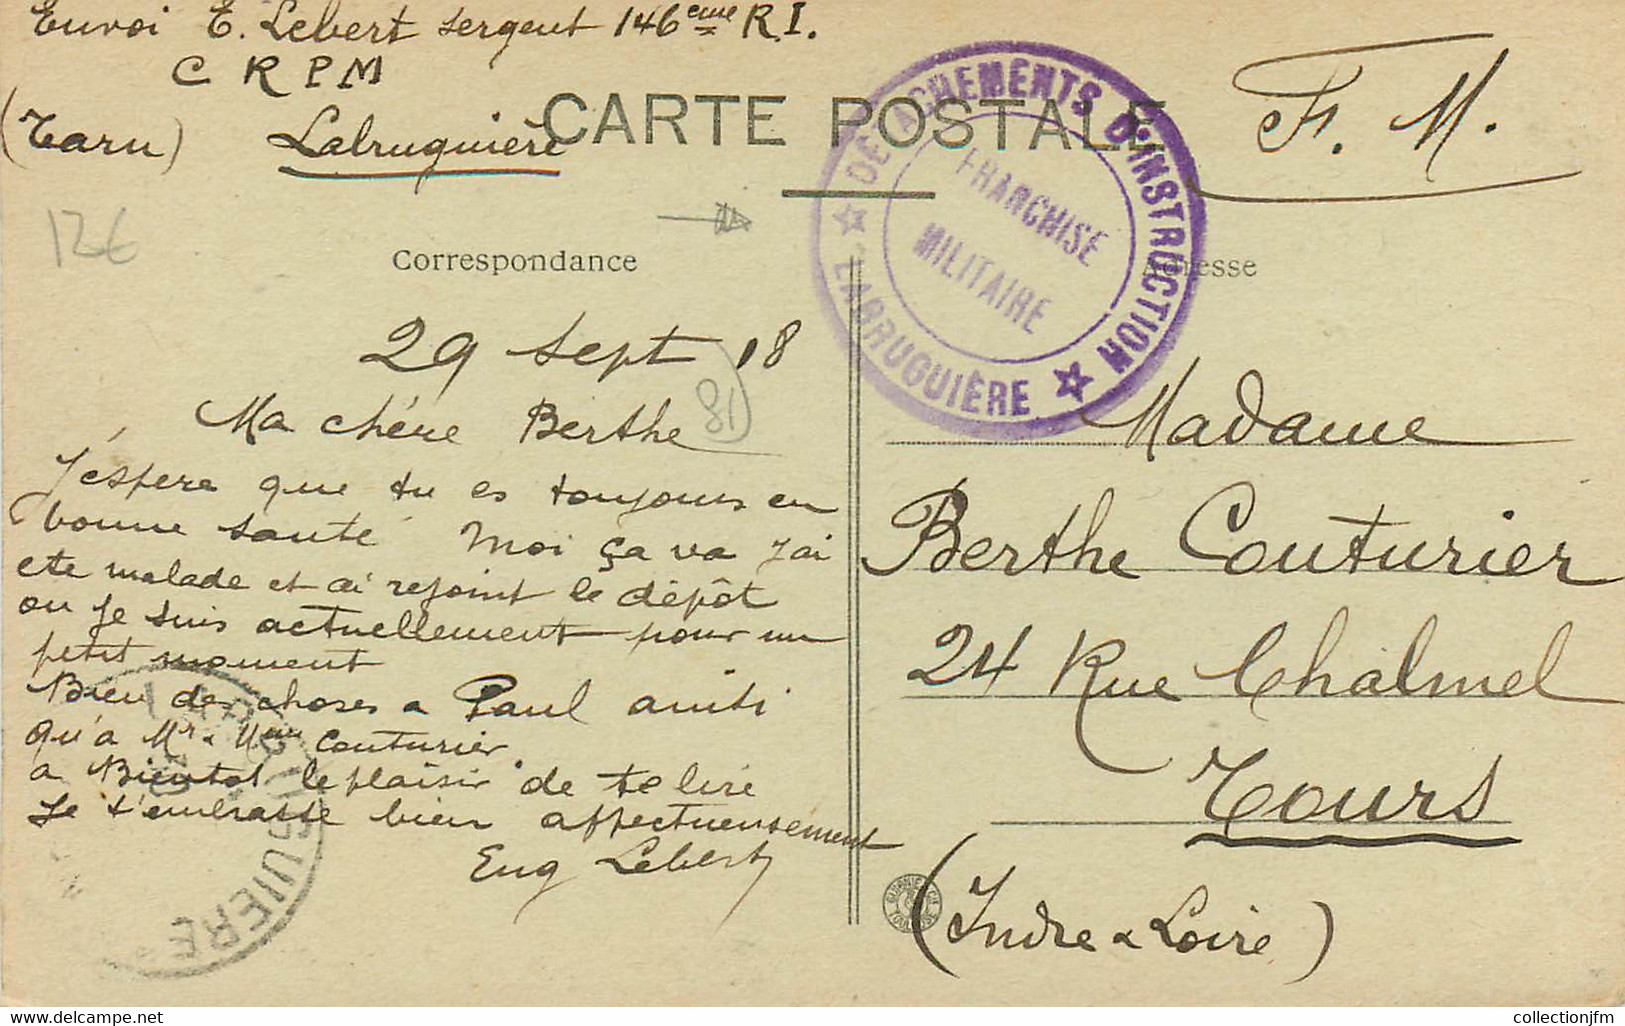 Envoi E. Lebert sergent 146ème R.I.
C R P M
(Tarn) Labruguière
CARTE POSTALE
F. M.
DÉTACHEMENTS D'INSTRUCTION
FRANCHISE
MILITAIRE
LABRUGUIÈRE
12€
Correspondance
Adresse
29 Sept 18
81)
Ma chére Berthe
J'éspere que tu es toujours en
bonne santé Moi ça va j'ai
ete malade et ai rejoint le dépôt
ou je suis actuellement pour un
petit moment
Bien des choses a Paul ainsi
qu'a Mr & Mme Couturier.
a Bientot le plaisir de te lire
Je t'embrasse bien affectueusement
Eug Lebert
LABRUGUIERE
Madame
Berthe Couturier
24 Rue Chalmel
Tours
(Indre & Loire)
collectionjfm